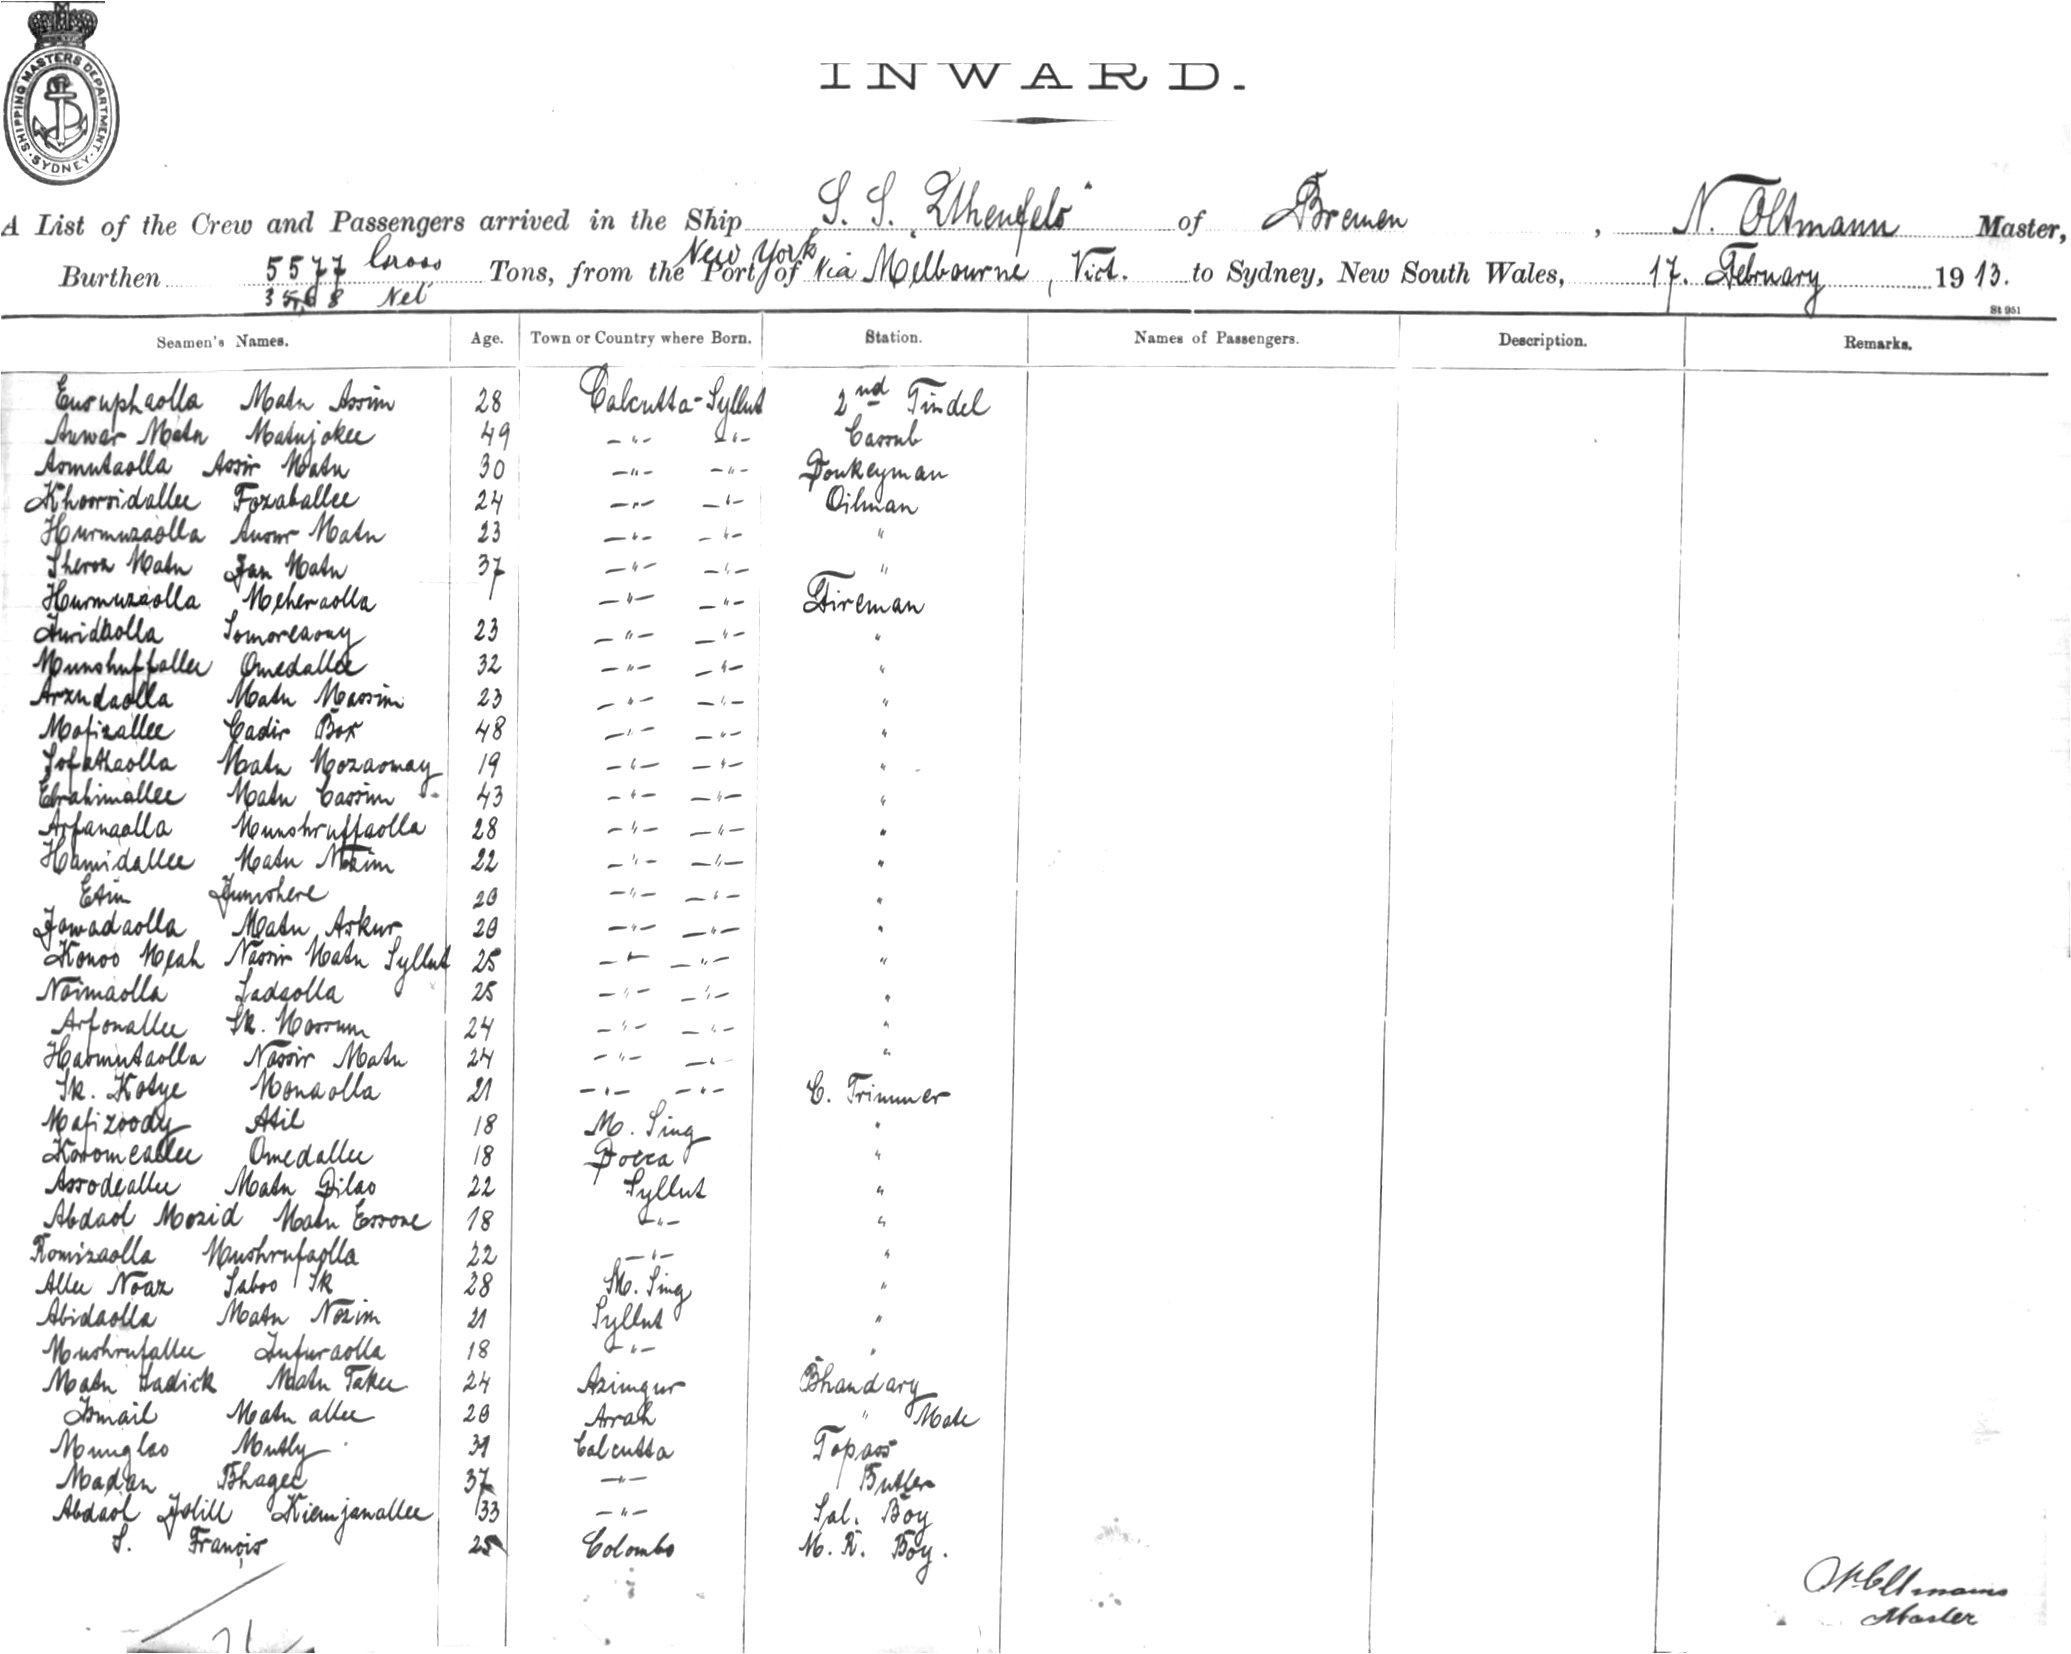 SHIPPING MASTERS DEPARTMENT. SYDNEY.
INWARD.
A List of the Crew and Passengers arrived in the Ship S. S. of Bremen, N. Oltmann Master,
Burthen 5577 Gross Tons, from the Port of New York Via Melbourne, Vict. to Sydney, New South Wales, 17. February 1913.
3568 Net
St 951
Seamen's Names. Age. Town or Country where Born. Station. Names of Passengers. Description. Remarks.
Eusuphaolla Matu Assim 28 Calcutta-Syllut 2nd Tindel
Anwar Matu Matujokee 49 -"- -"- Cassub
Asmutaolla Assir Matu 30 -"- -"- Donkeyman
Khorsidallee Fozaballee 24 -"- -"- Oilman
Hurmuzaolla Ausur Matu 23 -"- -"- "
Sheroz Matu Jan Matu 37 -"- -"- "
Hurmuzaolla Meheraolla -"- -"- Fireman
Somoreaony 23 -"- -"- "
Munshuffallee Omedallee 32 -"- -"- "
Arzudaolla Matu Massim 23 -"- -"- "
Mofizallee Cadir Box 48 -"- -"- "
Sofathaolla Matu Mozaomay 19 -"- -"- "
Ebrahimallee Matu Cassim 43 -"- -"- "
Arfanaolla Munshruffaolla 28 -"- -"- "
Hamidallee Matu Nozim 22 -"- -"- "
Etim Jumshere 20 -"- -"- "
Jawadaolla Matu Askur 20 -"- -"- "
Konoo Meah Nassir Matu Syllut 25 -"- -"- "
Noimaolla Sadaolla 25 -"- -"- "
Arfonallee Sk. Mossum 24 -"- -"- "
Hasmutaolla Nassir Matu 24 -"- -"- "
Sk. Kotye Monaolla 21 -"- -"- C. Trimmer
Mafizoody Atil 18 M. Sing "
Koromeallee Omedallee 18 Docca "
Assodeallee Matu Dilao 22 Syllut "
Abdaol Mozid Matu Essone 18 -"- "
Romizaolla Mushrufaolla 22 -"- "
Allee Noaz Saboo Sk 28 M. Sing "
Abidaolla Matu Nozim 21 Syllut "
Mushrufallee Jufuraolla 18 -"- "
Matu Sadick Matu Takee 24 Azimgur Bhandary
Ismail Matu allee 20 Arrah " Mate
Munglao Mutly 31 Calcutta Topass
Madan Bhagee 37 -"- Butler
Abdaol Jolill Kiemjanallee 33 -"- Sal. Boy
S. Francis 25 Colombo M. R. Boy.
N. Oltmanns
Master